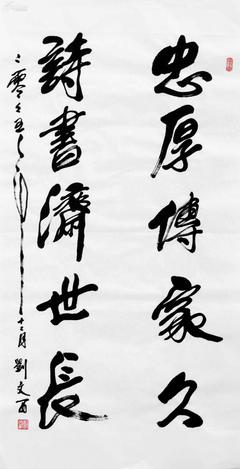 忠厚傳家久
詩書濟世長
二零零五年十二月劉文酉